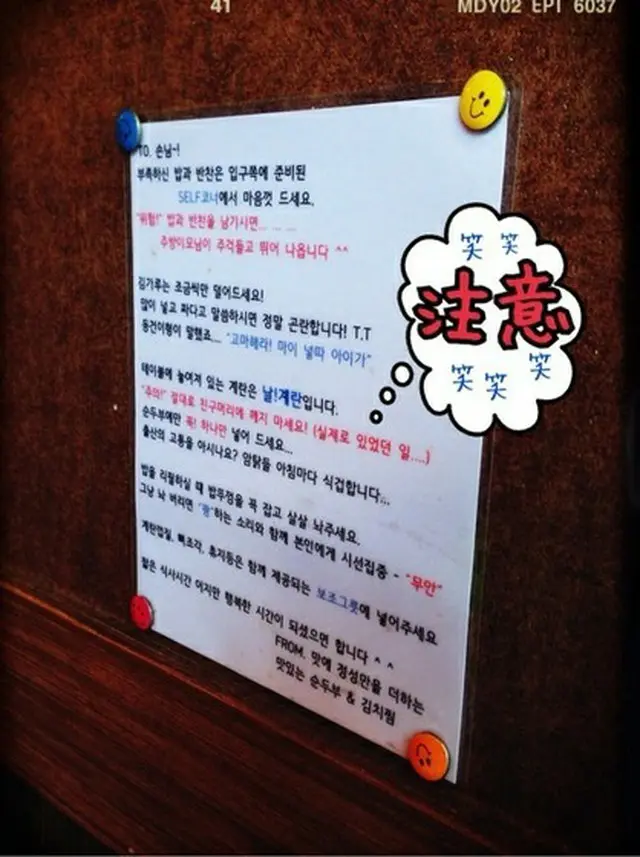 41
MDY02 EPT 6037
TO. 손님~!
부족하신 밥과 반찬은 입구쪽에 준비된
SELF코너에서 마음껏 드세요.
"위험!" 밥과 반찬을 남기시면... ... ...
주방이모님이 주걱들고 뛰어 나옵니다 ^^
김가루는 조금씩만 덜어드세요!
많이 넣고 짜다고 말씀하시면 정말 곤란합니다! T.T
동건이형이 말했죠... "고마해라! 마이 넣따 아이가"
테이블에 놓여져 있는 계란은 날!계란입니다.
"주의!" 절대로 친구머리에 깨지 마세요! (실제로 있었던 일....)
순두부에만 꼭! 하나만 넣어 드세요...
출산의 고통을 아시나요? 암탉들 아침마다 식겁합니다...
밥을 리필하실 때 밥뚜껑을 꼭 잡고 살살 놔주세요.
그냥 놔 버리면 "쾅"하는 소리와 함께 본인에게 시선집중 - "무안"
계란껍질, 뼈조각, 휴지등은 함께 제공되는 보조그릇에 넣어주세요
짧은 식사시간 이지만 행복한 시간이 되셨으면 합니다 ^ ^
FROM. 맛에 정성만을 더하는
맛있는 순두부 & 김치찜
笑 笑
注意
笑 笑 笑